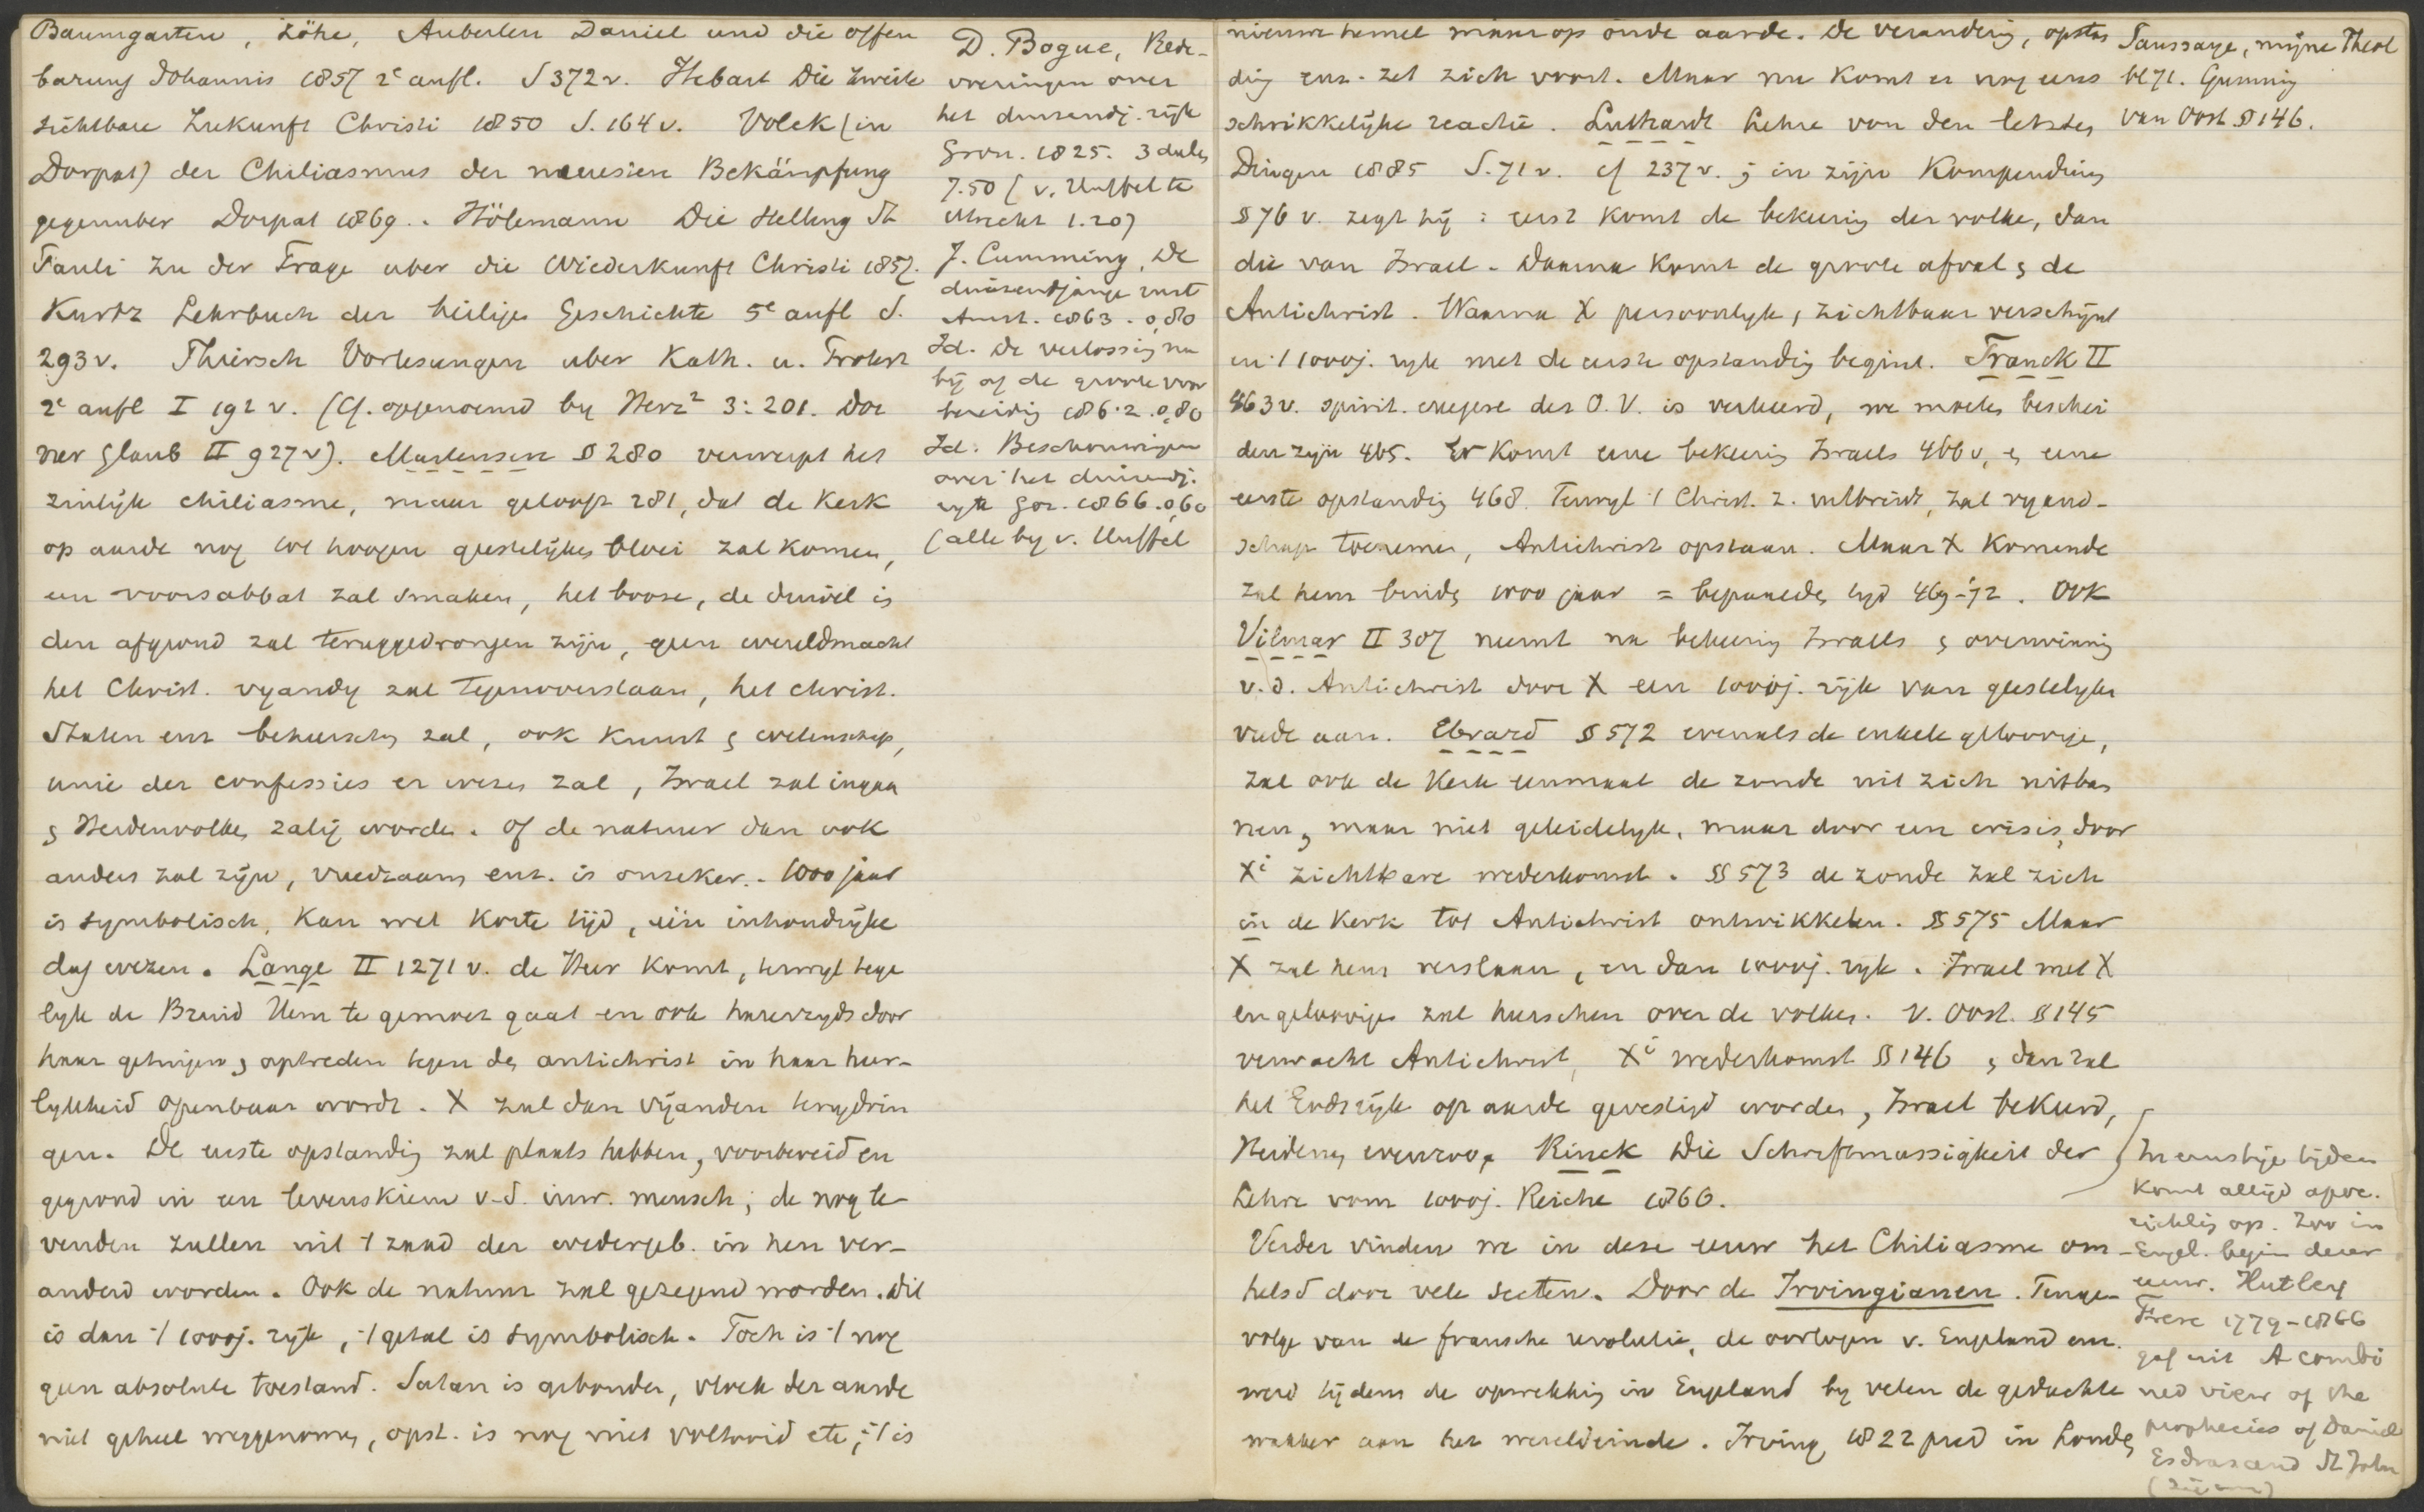 Baumgarten, Löhe, Auberlen Daniel und die offen
barung Johannis 1857 2e aufl. S 372 v. Hebart Die zweite
sichtbare Zukunft Christi 1850 S. 164 v. Volck (in
Dorpat) der Chiliasmus der neuesten Bekämpfung
gegenuber Dorpat 1869.. Hölemann Die Stellung St
Pauli zu der Frage uber die Wiederkunft Christi 1857.
Kurtz Lehrbuch der heilige Geschichte 5e aufl S.
293 v. Thiersch Vorlesungen uber Kath. u. Protest
2e aufl I 192 v. (Cf. opgenoemd by Herz² 3: 201. Dor
ner Glaub II 927 v). Martensen § 280 verwerpt het
zinlijk chiliasme, maar gelooft 281, dat de Kerk
op aarde nog tot hoogen geestelijken bloei zal komen,
een voorsabbat zal smaken, het booze, de duivel in
den afgrond zal teruggedrongen zijn, geen wereldmacht
het Christ. vyandig zal tegenoverstaan, het christ.
Staten enz beheerschen zal, ook kunst en wetenschap,
unie der confessies er wezen zal, Israel zal ingaan
en Heidenvolken zalig worden. Of de natuur dan ook
anders zal zijn, vreedzaam enz. is onzeker.. 1000 jaar
is symbolisch, kan wel korte tijd, één inhoudrijke
dag wezen. Lange II 1271 v. de Heer komt, terwyl tege
lyk de Bruid Hem te gemoet gaat en ook harerzyds door
haar getuigen en optreden tegen den antichrist in haar heer-
lykheid openbaar wordt. X zal dan vijanden terugdrin
gen. De eerste opstanding zal plaats hebben, voorbereid en
gegrond in een levenskiem v.d. inw. mensch; de nog le-
venden zullen uit 't zaad der wedergeb. in hen ver-
anderd worden. Ook de natuur zal gezegend worden. Dit
is dan 't 1000j. rijk, 't getal is symbolisch. Toch is 't nog
geen absolute toestand. Satan is gebonden, vloek der aarde
niet geheel weggenomen, opst. is nog niet voltooid etc; 't is
D. Bogue, Rede-
voeringen over
het duizendj. rijk
Gron. 1825. 3 delen
7.50 (v. Huffel te
Utrecht 1.20)
J. Cumming, De
duizendjarige rust
Amst. 1863. 0,80
Id. De verlossing na
bij of de groote voor
bereiding 1862. 0,80
Id. Beschouwingen
over het duizendj.
ryk Gor. 1866. 0,60
(alle by v. Huffel
nieuwe hemel maar op oude aarde. De verandering, opstan
ding enz. zet zich voort. Maar nu komt er nog eens
schrikkelijke reactie. Luthardt Lehre von den letzten
Dingen 1885 S. 71 v. cf 237 v.; in zijn Kompendium
§ 76 v. zegt hij: eerst komt de bekeering der volken, dan
die van Israel. Daarna komt de groote afval en de
Antichrist. Waarna X persoonlyk, zichtbaar verschijnt
en 't 1000j. ryk met de eerste opstanding begint. Franck II
463 v. spirit. exegese der O. V. is verkeerd, we moeten beschei
den zijn 465. Er komt eene bekeering Israels 466 v, en eene
eerste opstanding 468. Terwyl 't Christ. z. uitbreidt, zal vyand-
schap toenemen, Antichrist opstaan. Maar X komende
zal hem binden 1000 jaar = bepaalden tyd 469-72. Ook
Vilmar II 307 neemt na bekeering Israels en overwinning
v.d. Antichrist door X een 1000j. rijk van geestelyken
vrede aan. Ebrard § 572 evenals de enkele geloovige,
zal ook de Kerk eenmaal de zonde uit zich uitban
nen, maar niet geleidelyk, maar door een crisis, door
Xi zichtbare wederkomst. §§ 573 de zonde zal zich
in de Kerk tot Antichrist ontwikkelen. §§ 575 Maar
X zal hem verslaan, en dan 1000j. ryk. Israel met X
en geloovigen zal heerschen over de volken. V. Oost. § 145
verwacht Antichrist, Xi wederkomst §§ 146, en dan zal
het Godsrijk op aarde gevestigd worden, Israel bekeerd,
Heidenen evenzoo, Rinck Die Schriftmassigkeit der
Lehre vom 1000j. Reiche 1866.
Verder vinden we in deze eeuw het Chiliasme om-
helsd door vele secten. Door de Irvingianen. Tenge-
volge van de fransche revolutie, de oorlogen v. Engeland enz.
werd tijdens de opwekking in Engeland by velen de gedachte
wakker aan het wereldeinde. Irving, 1822 pred in Londen
Saussaye, mijne Theol
bl 71. Gunning
van Oost § 146.
In ernstige tijden
komt altijd apoc.
richting op. Zoo in
Engel. begin dezer
eeuw. Hatley
Frere 1779-1866
gaf uit A combi
ned view of the
prophecies of Daniel
Esdras and St John